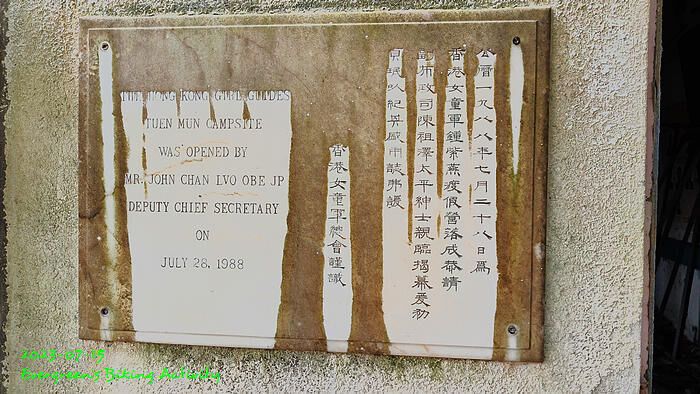 THE HONG KONG GIRL GUIDES
TUEN MUN CAMPSITE
WAS OPENED BY
MR. JOHN CHAN LVO OBE JP
DEPUTY CHIEF SECRETARY
ON
JULY 28, 1988
公曆一九八八年七月二十八日為
香港女童軍鍾紫燕渡假營落成恭請
副布政司陳祖澤太平紳士親臨揭幕爰勒
貞珉以紀其盛用誌弗諼
香港女童軍總會謹識
2023-07-15
Evergreen's Biking